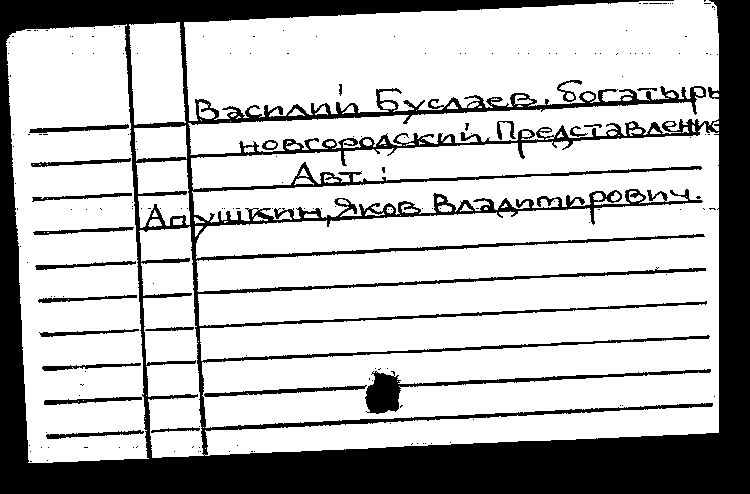 Василий Буслаев, богатырь
новгородский. Представление
Авт.:
Апушкин, Яков Владимирович.